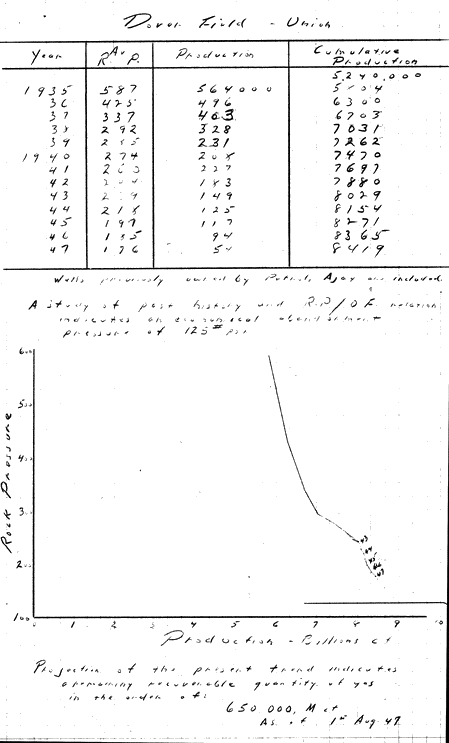 Dover Field - Union
Year Av R P. Production Cumulative Production
5,240,000
1935 587 564000 5804
36 425 496 6300
37 337 403 6703
38 292 328 7031
39 285 231 7262
1940 274 208 7470
41 263 227 7697
42 183 7880
43 149 8029
44 218 125 8154
45 197 117 8271
46 185 94 8365
47 176 54 8419
Wells previously owned by Ajax are included.
A study of past history and R.P/OF relation
indicates an economical abandonment
pressure of 125# psi
Rock Pressure
600
500
400
300
200
100
43
44
45
46
47
0 1 2 3 4 5 6 7 8 9 10
Production - Billions cf
Projection of the present trend indicates
a remaining recoverable quantity of gas
in the order of:
650 000, M cf
As of 1st Aug 47.